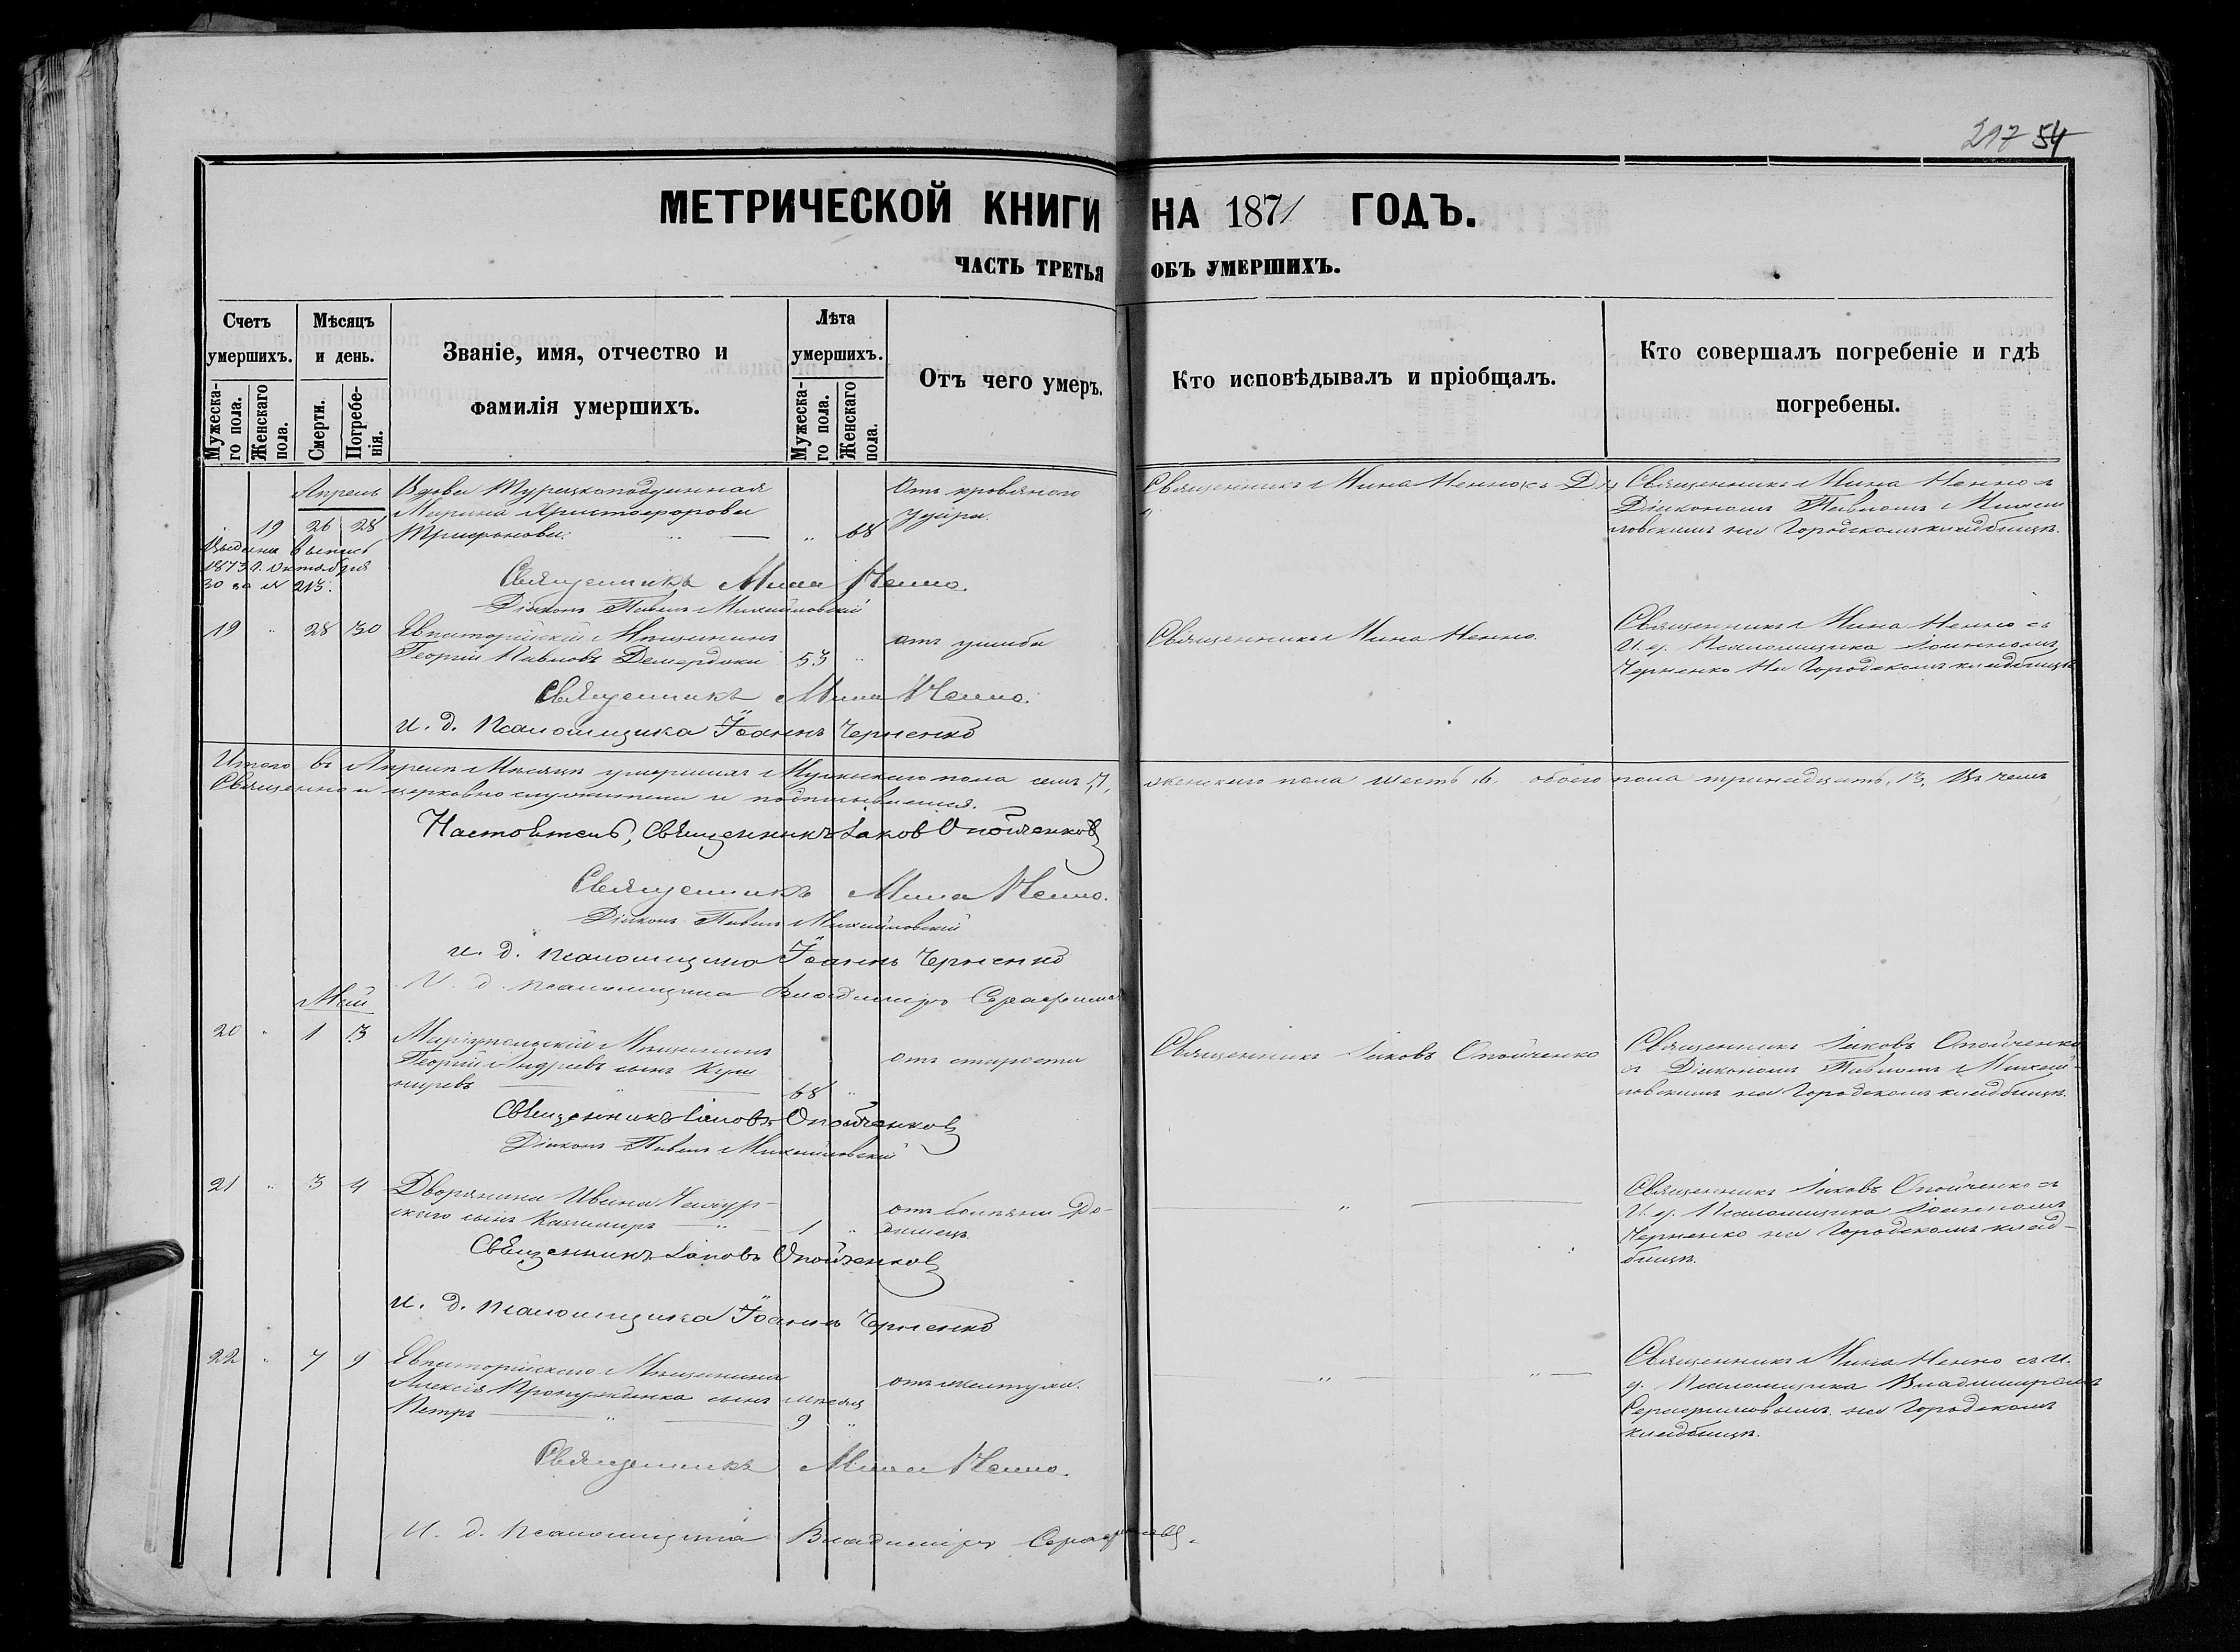 217 54
МЕТРИЧЕСКОЙ КНИГИ НА 1871 ГОДЪ.
ЧАСТЬ ТРЕТЬЯ ОБЪ УМЕРШИХЪ.
Счетъ умершихъ.
Мужеска-го пола.
Женскаго пола.
Мѣсяцъ и день.
Смерти.
Погребе-нія.
Званіе, имя, отчество и
фамилія умершихъ.
Лѣта умершихъ.
Мужеска-го пола.
Женскаго пола.
Отъ чего умеръ.
Кто исповѣдывалъ и пріобщалъ.
Кто совершалъ погребеніе и гдѣ
погребены.
Апрель
19 26 28
Вдова Турецкоподданная
Марина Христофорова
Трифонова " — " 68
Отъ кроваваго
удара.
Священникъ Мина Ненно
Священникъ Мина Ненно съ
Діакономъ Павломъ Михай
ловскимъ на Городскомъ кладбищѣ.
Выдана выпись
1873 г. октября
30 за № 213.
Священникъ Мина Ненно.
Діаконъ Павелъ Михайловскій
19 " 28 30
Евпаторійскій Мѣщанинъ
Георгій Павловъ Демерджи 53 "
отъ ушиба
Священникъ Мина Ненно.
Священникъ Мина Ненно съ
И. д. Псаломщика Іоанномъ
Черненко на Городскомъ кладбищѣ
Священникъ Мина Ненно.
И. д. Псаломщика Іоаннъ Черненко
Итого въ Апрелѣ Мѣсяцѣ умершихъ Мужескаго пола семь, 7, женскаго пола шесть, 6, обоего пола тринадцать, 13, Въ чемъ
Священно и церковно служители и подписываемся.
Настоятель, Священникъ Іаковъ Опойченковъ
Священникъ Мина Ненно.
Діаконъ Павелъ Михайловскій
и. д. псаломщика Іоаннъ Черненко
И. д. псаломщика Владиміръ Серафимовъ
Май
20 " 1 3
Маріупольскій Мѣщанинъ
Георгій Андреевъ сынъ Куш
наревъ — " — 68 "
отъ старости
Священникъ Іаковъ Опойченко
Священникъ Іаковъ Опойченко
съ Діакономъ Павломъ Михай-
ловскимъ на Городскомъ кладбищѣ.
Священникъ Іаковъ Опойченковъ
Діаконъ Павелъ Михайловскій
21 " 3 4
Дворянина Ивана
скаго сынъ Казимиръ — " — 1 "
отъ болѣзни Ро-
димецъ
— " —
Священникъ Іаковъ Опойченко съ
И. д. Псаломщика Іоанномъ
Черненко на Городскомъ клад-
бищѣ.
Священникъ Іаковъ Опойченковъ
И. д. псаломщика Іоаннъ Черненко
22 " 7 9
Евпаторійскаго Мѣщанина
Алексія сынъ мѣсяц
Петръ — " — 9 "
отъ желтухи.
— " — " —
Священникъ Мина Ненно съ И.
д. Псаломщика Владиміромъ
Серафимовымъ на Городскомъ
кладбищѣ.
Священникъ Мина Ненно.
И. д. псаломщика Владиміръ Серафимовъ.